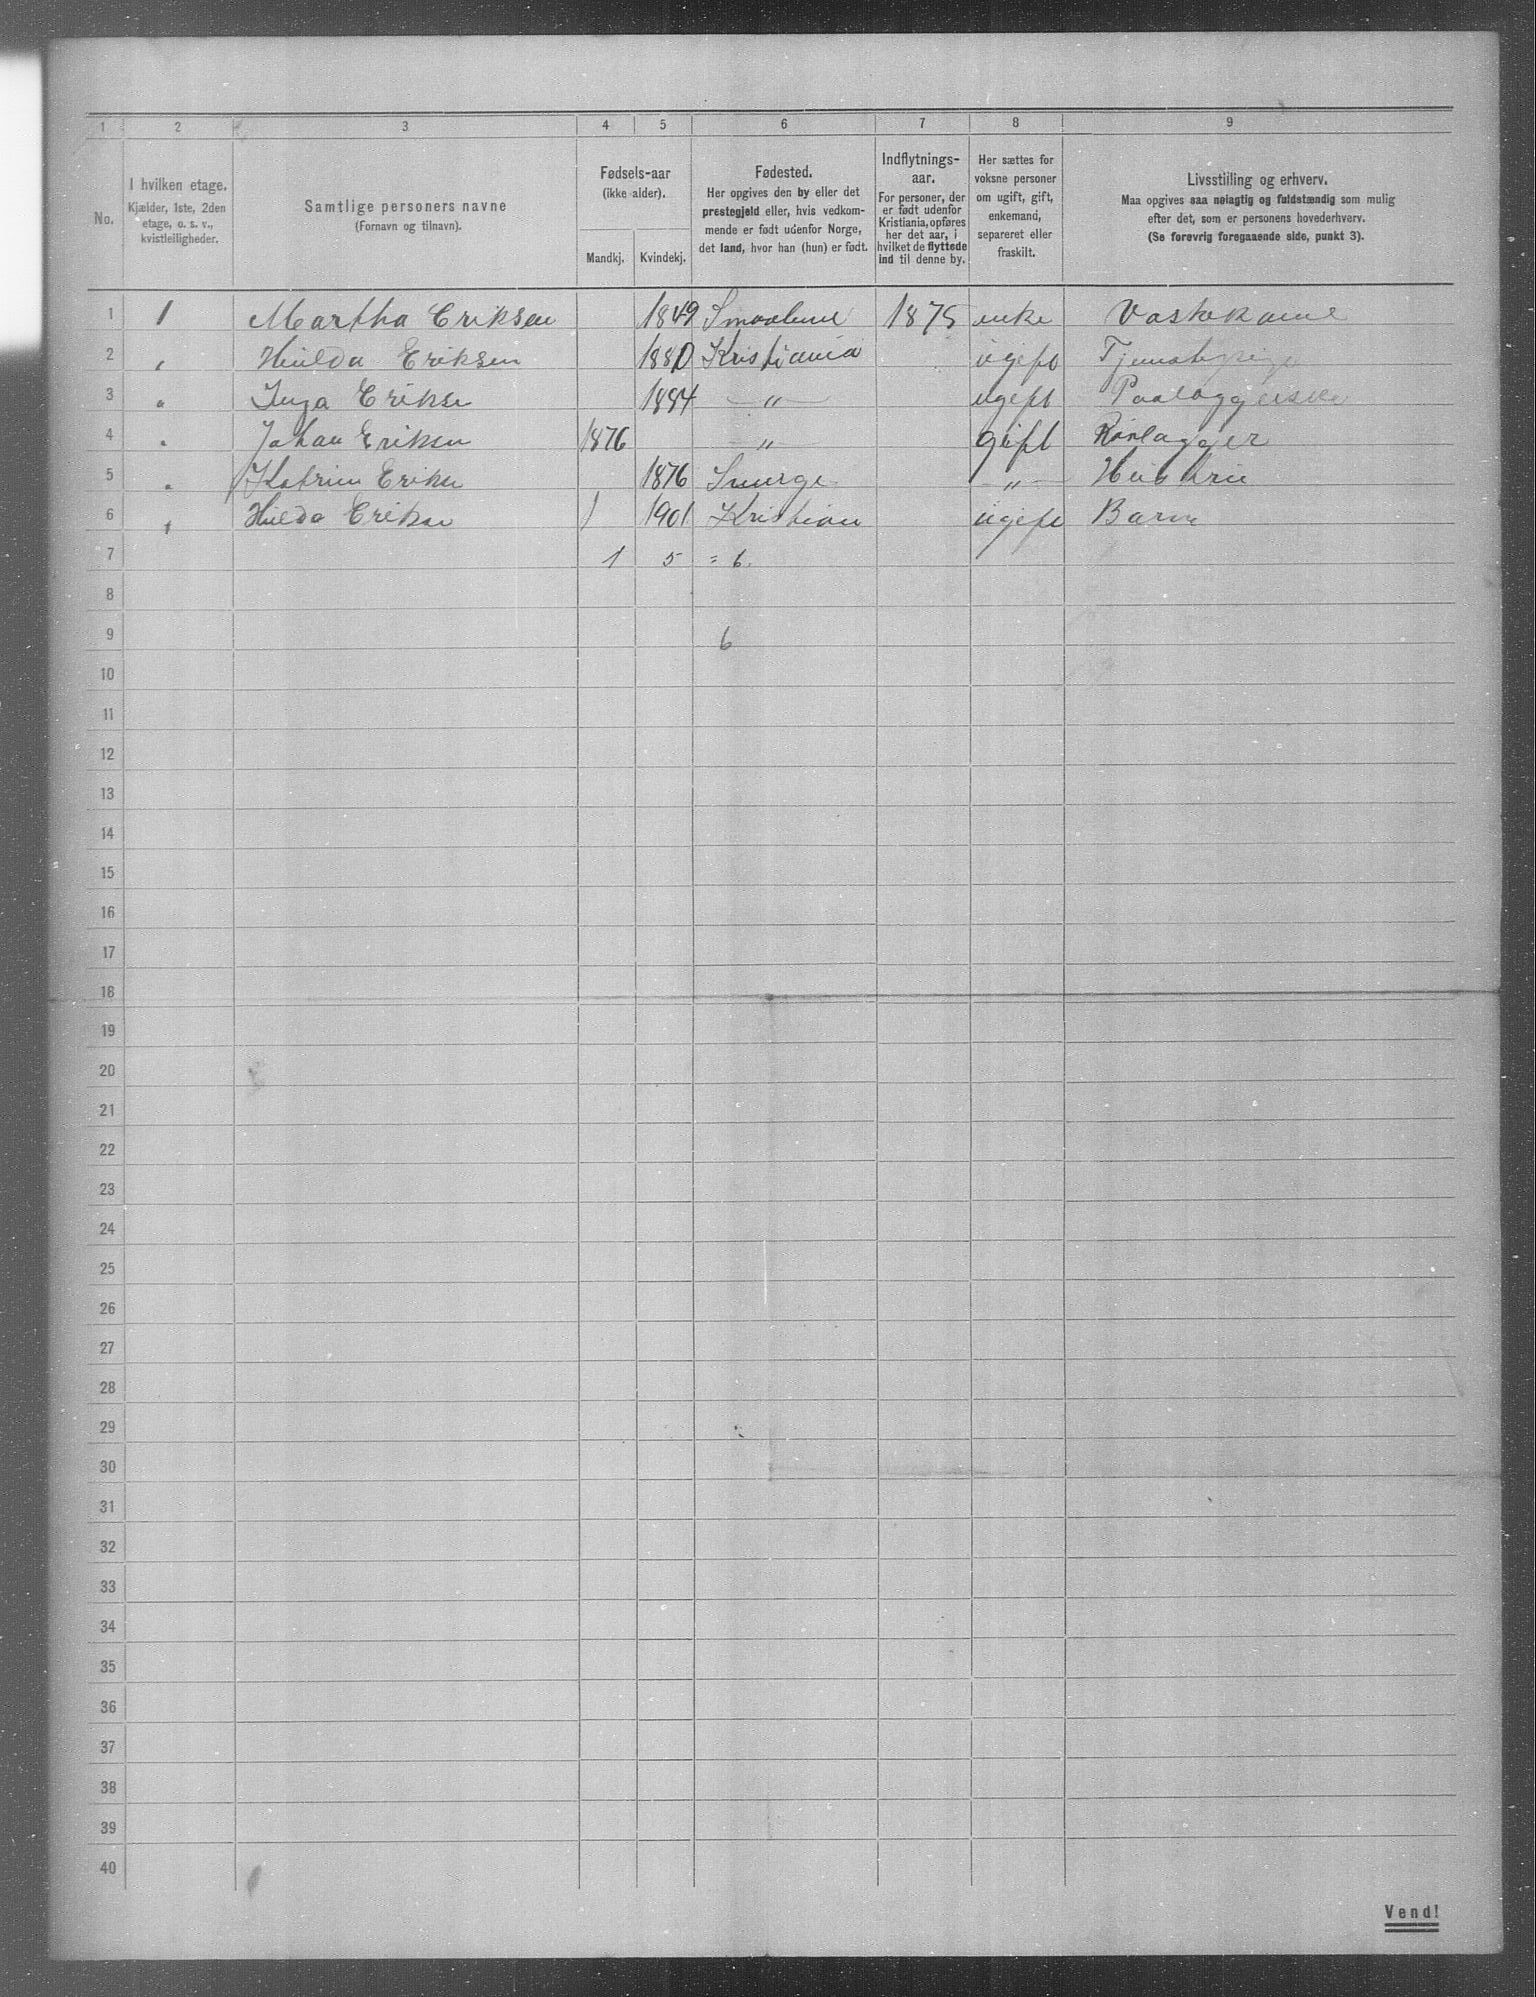 1 2 3 4 5 6 7 8 9
No.
I hvilken etage.
Kjælder, 1ste, 2den
etage, o. s. v.,
kvistleiligheder.
Samtlige personers navne
(Fornavn og tilnavn).
Fødsels-aar
(ikke alder).
Mandkj. Kvindekj.
Fødested.
Her opgives den by eller det
prestegjeld eller, hvis vedkom-
mende er født udenfor Norge,
det land, hvor han (hun) er født.
Indflytnings-
aar.
For personer, der
er født udenfor
Kristiania, opføres
her det aar, i
hvilket de flyttede
ind til denne by.
Her sættes for
voksne personer
om ugift, gift,
enkemand,
separeret eller
fraskilt.
Livsstilling og erhverv.
Maa opgives saa nøiagtig og fuldstændig som mulig
efter det, som er personens hovederhverv.
(Se forøvrig foregaaende side, punkt 3).
1 1 Martha Eriksen 1849 Smaalene 1875 enke Vaskekone
2 " Hulda Eriksen 1880 Kristiania ugift Tjenestepige
3 " Inga Erikse 1884 — " — ugift Paalæggerske
4 " Johan Eriksen 1876 — " — gift Rørlægger
5 " Katrine Erikse 1876 — " — Hustru
6 " Hulda Erikse 1901 Kristian ugift Barn
7 1 5 = 6.
8
9 6
10
11
12
13
14
15
16
17
18
19
20
21
22
23
24
25
26
27
28
29
30
31
32
33
34
35
36
37
38
39
40
Vend!